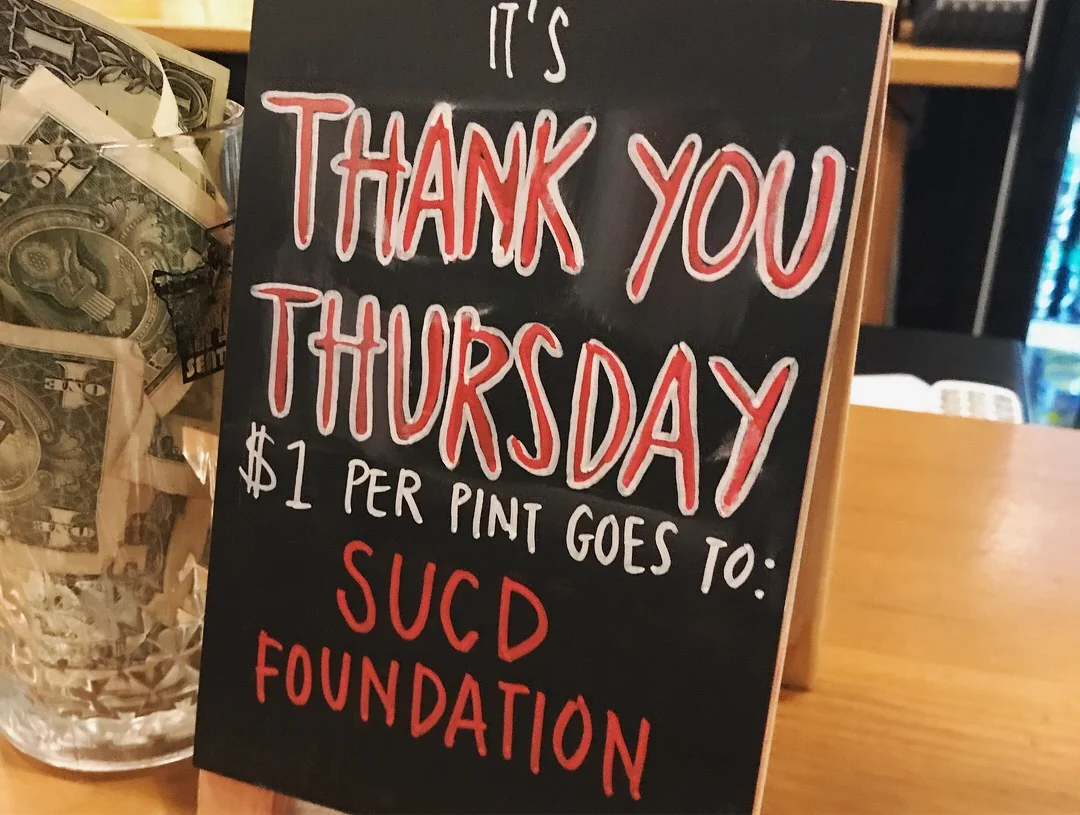 IT'S
THANK YOU
THURSDAY
$1 PER PINT GOES TO:
SUCD
FOUNDATION
ONE
ONE